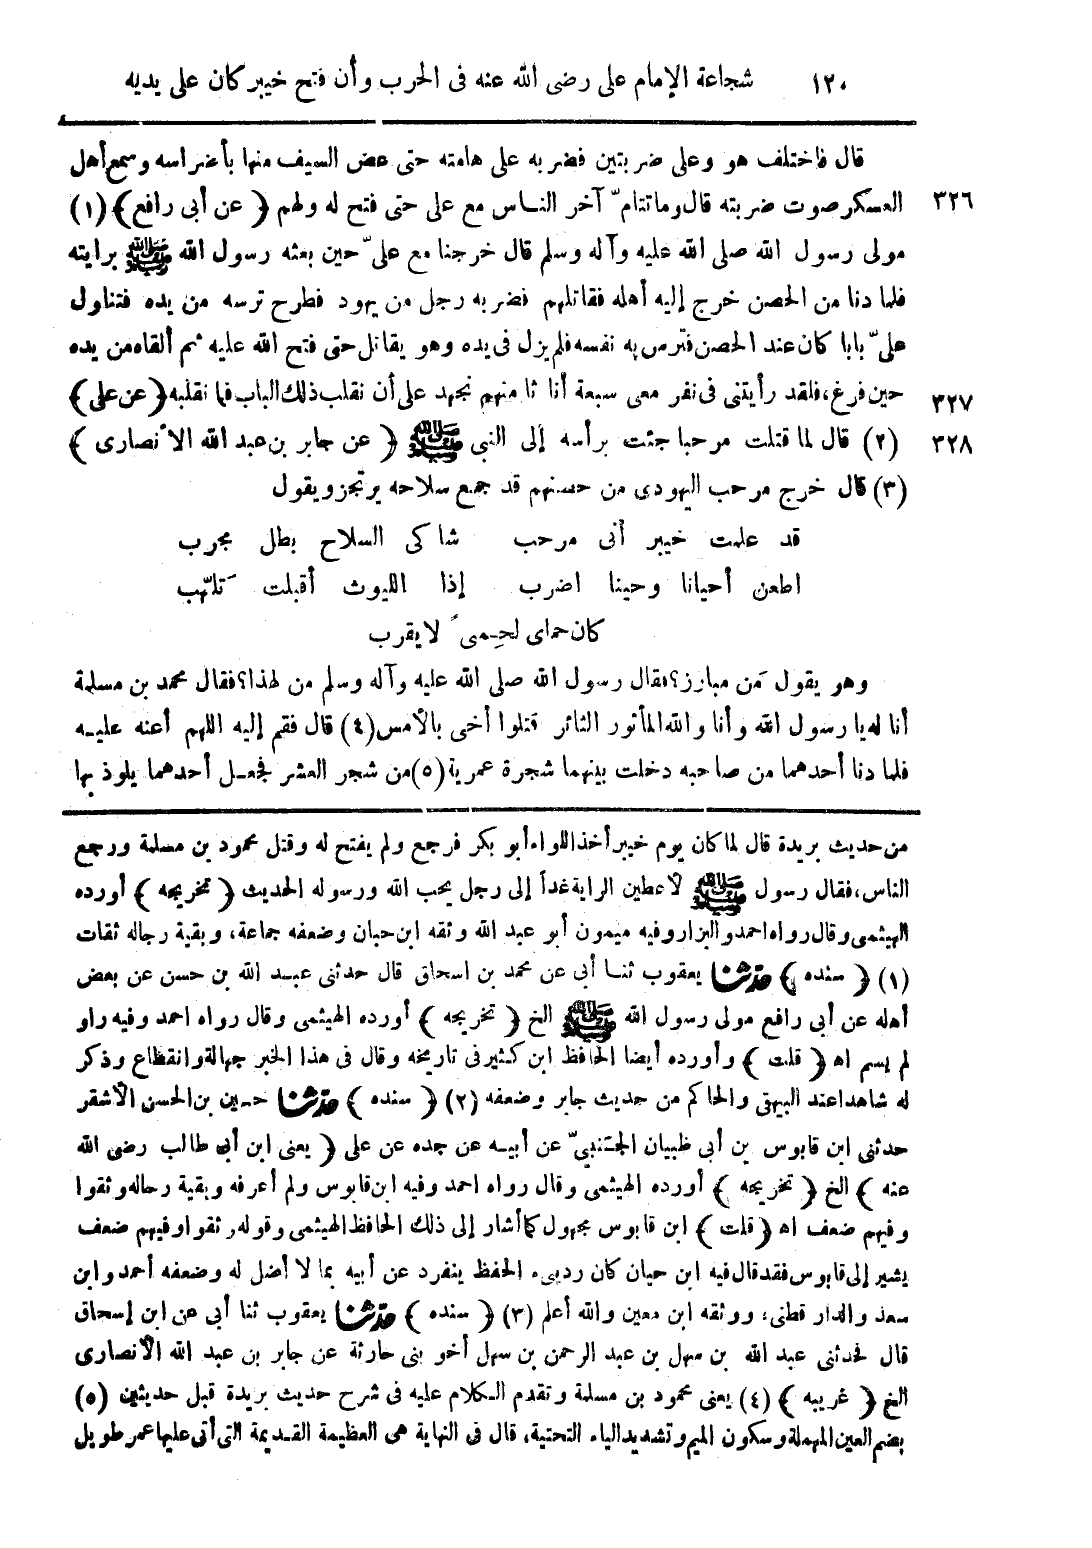 ١٢٠ شجاعة الإمام على رضى الله عنه فى الحرب وأن فتح خيبر كان على يديه
قال فاختلف هو وعلى ضربتين فضربه على هامته حتى عض السيف منها بأضراسه وسمع أهل
٣٢٦ العسكر صوت ضربته قال وما تتامّ آخر الناس مع على حتى فتح له ولهم ﴿ عن أبى رافع ﴾ (١)
مولى رسول الله صلى الله عليه وآله وسلم قال خرجنا مع علىّ حين بعثه رسول الله ﷺ برايته
فلما دنا من الحصن خرج إليه أهله فقاتلهم فضربه رجل من يهود فطرح ترسه من يده فتناول
علىّ بابا كان عند الحصن فترس به نفسه فلم يزل فى يده وهو يقاتل حتى فتح الله عليه ثم ألقاه من يده
٣٢٧ حين فرغ، فلقد رأيتنى فى نفر معى سبعة أنا ثامنهم نجهد على أن نقلب ذلك الباب فما نقلبه ﴿ عن على ﴾
٣٢٨ (٢) قال لما قتلت مرحبا جئت برأسه إلى النبى ﷺ ﴿ عن جابر بن عبد الله الأنصارى ﴾
(٣) قال خرج مرحب اليهودى من حصنهم قد جمع سلاحه يرتجز ويقول
قد علمت خيبر أنى مرحب شاكى السلاح بطل مجرب
اطعن أحيانا وحينا اضرب إذا الليوث أقبلت تلهّب
كان حماى لحمى لا يقرب
وهو يقول من مبارز؟ فقال رسول الله صلى الله عليه وآله وسلم من لهذا؟ فقال محمد بن مسلمة
أنا له يا رسول الله وأنا والله المأثور الثائر قتلوا أخى بالأمس (٤) قال فقم إليه اللهم أعنه عليه
فلما دنا أحدهما من صاحبه دخلت بينهما شجرة عمرية (٥) من شجر العشر فجعل أحدهما يلوذ بها
من حديث بريدة قال لما كان يوم خيبر أخذ اللواء أبو بكر فرجع ولم يفتح له وقتل محمود بن مسلمة ورجع
الناس، فقال رسول ﷺ لأعطين الراية غداً إلى رجل يحب الله ورسوله الحديث ﴿ تخريجه ﴾ أورده
الهيثمى وقال رواه احمد والبزار وفيه ميمون أبو عبد الله وثقه ابن حبان وضعفه جماعة، وبقية رجاله ثقات
(١) ﴿ سنده ﴾ حدثنا يعقوب ثنا أبى عن محمد بن اسحاق قال حدثنى عبد الله بن حسن عن بعض
أهله عن أبى رافع مولى رسول الله ﷺ الخ ﴿ تخريجه ﴾ أورده الهيثمى وقال رواه احمد وفيه راو
لم يسم اه ﴿ قلت ﴾ وأورده أيضا الحافظ ابن كثير فى تاريخه وقال فى هذا الخبر جهالة وانقطاع وذكر
له شاهدا عند البيهقى والحاكم من حديث جابر وضعفه (٢) ﴿ سنده ﴾ حدثنا حسين بن الحسن الأشقر
حدثنى ابن قابوس بن أبى ظبيان الجنبىّ عن أبيه عن جده عن على ﴿ يعنى ابن أبى طالب رضى الله
عنه ﴾ الخ ﴿ تخريجه ﴾ أورده الهيثمى وقال رواه احمد وفيه ابن قابوس ولم أعرفه وبقية رجاله وثقوا
وفيهم ضعف اه ﴿ قلت ﴾ ابن قابوس مجهول كما أشار إلى ذلك الحافظ الهيثمى وقوله وثقوا وفيهم ضعف
يشير إلى قابوس فقد قال فيه ابن حبان كان ردىء الحفظ ينفرد عن أبيه بما لا أصل له وضعفه أحمد وابن
سعد والدار قطنى، ووثقه ابن معين والله أعلم (٣) ﴿ سنده ﴾ حدثنا يعقوب ثنا أبى عن ابن إسحاق
قال فحدثنى عبد الله بن سهل بن عبد الرحمن بن سهل أخو بنى حارثة عن جابر بن عبد الله الأنصارى
الخ ﴿ غريبه ﴾ (٤) يعنى محمود بن مسلمة وتقدم الكلام عليه فى شرح حديث بريدة قبل حديثين (٥)
بضم العين المهملة وسكون الميم وتشديد الياء التحتية، قال فى النهاية هى العظيمة القديمة التى أتى عليها عمر طويل